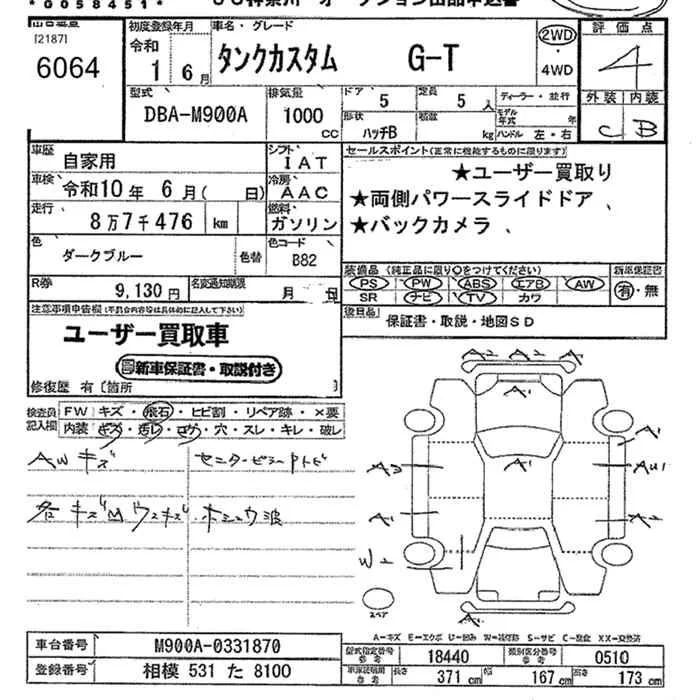 *0058451*
[2187]
6064
初度登録年月
令和
1 6月
車名・グレード
タンクカスタム G-T
2WD
・4WD
評価点
4
外装 内装
C B
型式
DBA-M900A
排気量
1000 cc
ドア
5
定員
5人
形状
ハッチB
積載
kg
ディーラー・並行
モデル年式 年
ハンドル 左・右
車歴
自家用
シフト
IAT
車検
令和10年 6月( 日)
冷房
AAC
走行
8万7千476 km
燃料
ガソリン
色
ダークブルー
色替
色コード
B82
セールスポイント(正常に機能するものに限ります)
★ユーザー買取り
★両側パワースライドドア、
★バックカメラ、
R券
9,130円
名変通知期限
月 日
装備品(純正品に限り○をつけてください)
PS PW ABS エアB AW
SR ナビ TV カワ
新車保証書
有・無
後日品
保証書・取説・地図SD
注意事項申告欄(不具合内容等は具体的に記入して下さい)
ユーザー買取車
新車保証書・取説付き
修復歴 有〔箇所
検査員記入欄
FW キズ・飛石・ヒビ割・リペア跡・×要
内装 キズ・汚レ・コゲ・穴・スレ・キレ・破レ
AWキズ
A2 A2 A
A1
A1
A1
A2
A1
W2
A1
AU1
A2
A
スペア
A-キズ E-エクボ U-凹み W-補修跡 S-サビ C-腐食 XX-交換済
車台番号
M900A-0331870
登録番号
相模 531 た 8100
型式指定番号
参考
18440
類別区分番号
参考
0510
車検証記載
参考
長さ
371 cm
幅
167 cm
高さ
173 cm